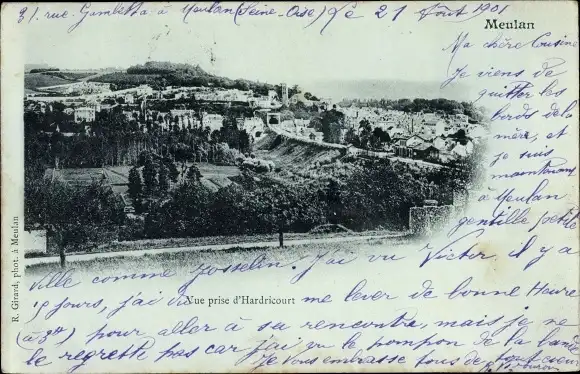 31, rue Gambetta à Meulan (Seine-Oise) le 21 Août 1901
Meulan
Ma chère Cousine
Je viens de
quitter les
bords de la
mère, et
je suis
maintenant
à Meulan
gentille petite
Ville comme Josselin. J'ai vu Victor, il y a
15 jours, j'ai dû me lever de bonne Heure
Vue prise d'Hardricourt
pour aller à sa rencontre, mais je ne
le regrette pas car j'ai vu le pompon de la bande
Je vous embrasse tous de tout cœur
R. Girard, phot. à Meulan